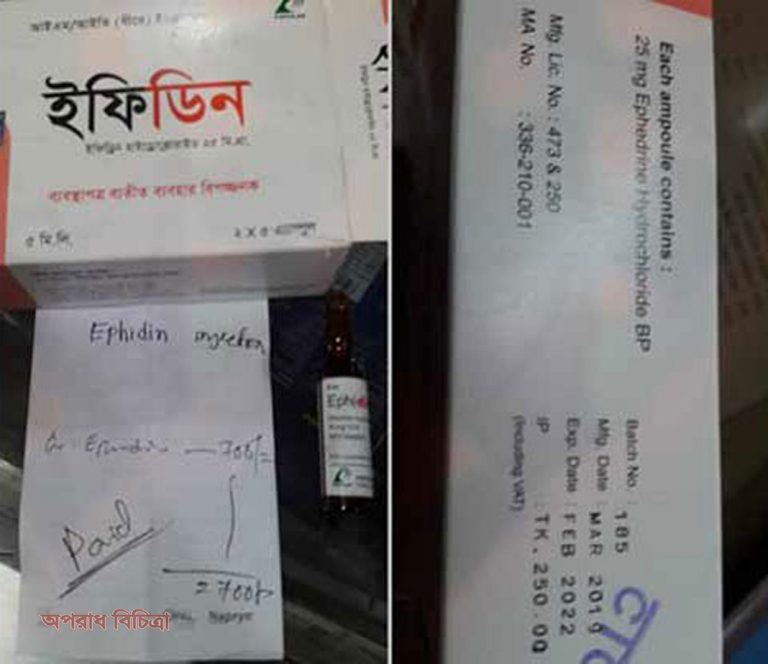 আইএম/আইভি (ধীরে)
ইফিডিন
ইফিড্রিন হাইড্রোক্লোরাইড ২৫ মি.গ্রা.
ব্যবস্থাপত্র ব্যতীত ব্যবহার বিপজ্জনক
৫ মি.লি.
২ X ৫ এ্যাম্পুল
Ephidin injection
700/=
Paid
= 700/-
Ephi
অপরাধ বিচিত্রা
Each ampoule contains :
25 mg Ephedrine Hydrochloride BP
Mfg. Lic. No. : 473 & 250
MA No. : 336-210-001
Batch No. : 185
Mfg. Date : MAR 2019
Exp. Date : FEB 2022
IP : TK. 250.00
(Including VAT)